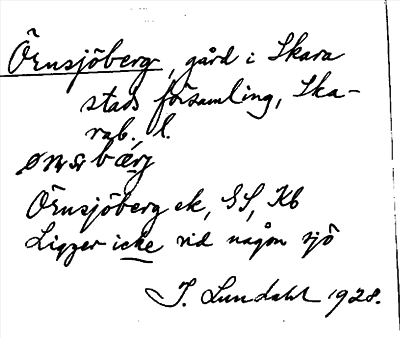 Örnsjöberg, gård i Skara
stads församling, Ska-
rab. l.
Örnsjöberg ek, GS, Kb
Ligger icke vid någon sjö
I. Lundahl 1928.